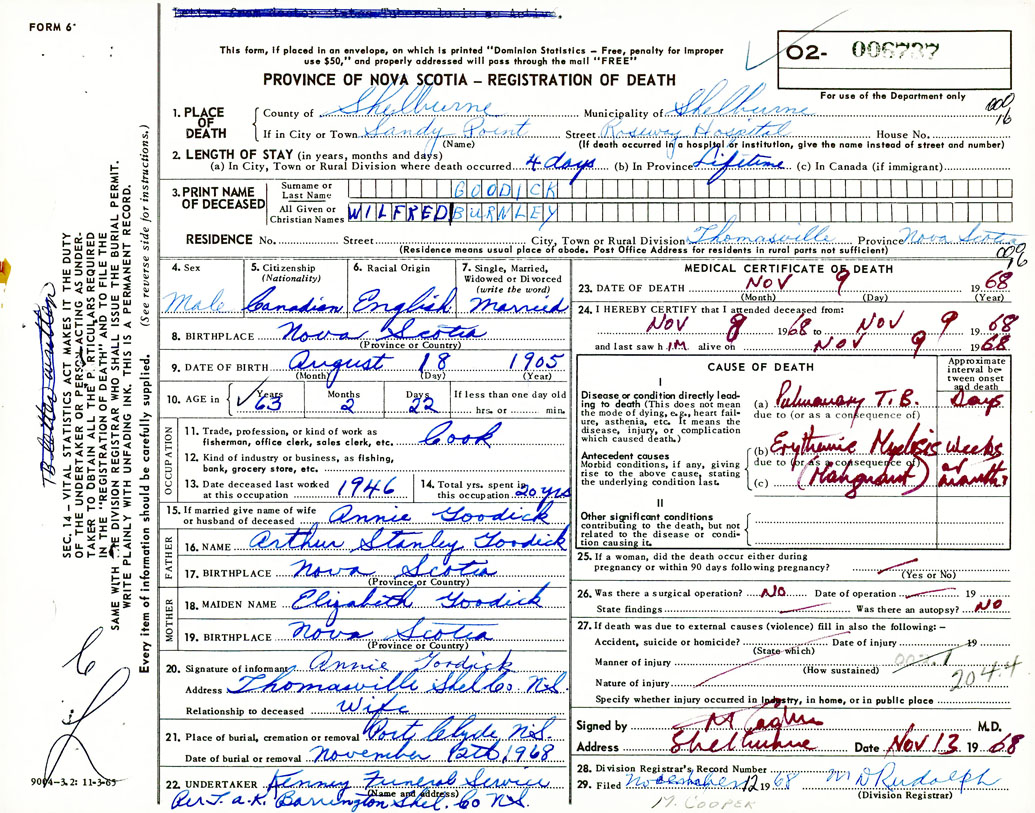 FORM 6
This form, if placed in an envelope, on which is printed "Dominion Statistics – Free, penalty for improper
use $50," and properly addressed will pass through the mail "FREE"
PROVINCE OF NOVA SCOTIA – REGISTRATION OF DEATH
O2- 006737
For use of the Department only
1. PLACE OF DEATH County of Shelburne Municipality of Shelburne
If in City or Town Sandy Point Street Roseway Hospital House No.
(Name) (If death occurred in a hospital or institution, give the name instead of street and number)
2. LENGTH OF STAY (in years, months and days)
(a) In City, Town or Rural Division where death occurred 4 days (b) In Province Lifetime (c) In Canada (if immigrant)
3. PRINT NAME OF DECEASED Surname or Last Name GOODICK
All Given or Christian Names WILFRED BURNLEY
RESIDENCE No. Street City, Town or Rural Division Thomasville Province Nova Scotia
(Residence means usual place of abode. Post Office Address for residents in rural parts not sufficient)
4. Sex Male
5. Citizenship (Nationality) Canadian
6. Racial Origin English
7. Single, Married, Widowed or Divorced (write the word) Married
8. BIRTHPLACE Nova Scotia
(Province or Country)
9. DATE OF BIRTH August 18 1905
(Month) (Day) (Year)
10. AGE in Years 63 Months 2 Days 22 If less than one day old
hrs. or min.
OCCUPATION
11. Trade, profession, or kind of work as
fisherman, office clerk, sales clerk, etc. Cook
12. Kind of industry or business, as fishing,
bank, grocery store, etc.
13. Date deceased last worked at this occupation 1946
14. Total yrs. spent in this occupation 20 yrs
15. If married give name of wife
or husband of deceased Annie Goodick
FATHER
16. NAME Arthur Stanley Goodick
17. BIRTHPLACE Nova Scotia
(Province or Country)
MOTHER
18. MAIDEN NAME Elizabeth Goodick
19. BIRTHPLACE Nova Scotia
(Province or Country)
20. Signature of informant Annie Goodick
Address Thomasville Shel Co. N.S.
Relationship to deceased Wife
21. Place of burial, cremation or removal Port Clyde N.S.
Date of burial or removal November 12th, 1968
22. UNDERTAKER Kenney Funeral Service
(Name and address)
Per T.A.K. Barrington Shel. Co N.S.
MEDICAL CERTIFICATE OF DEATH
23. DATE OF DEATH NOV 9 1968
(Month) (Day) (Year)
24. I HEREBY CERTIFY that I attended deceased from:
NOV 8 1968 to NOV 9 1968
and last saw him alive on NOV 9 1968
CAUSE OF DEATH
Approximate interval between onset and death
I
Disease or condition directly leading to death (This does not mean the mode of dying, e.g., heart failure, asthenia, etc. It means the disease, injury, or complication which caused death.)
(a) Pulmonary T.B. Days
due to (or as a consequence of)
Antecedent causes
Morbid conditions, if any, giving rise to the above cause, stating the underlying condition last.
(b) Erythemic Myelosis weeks or months
due to (or as a consequence of)
(c) (Malignant)
II
Other significant conditions
contributing to the death, but not related to the disease or condition causing it.
25. If a woman, did the death occur either during
pregnancy or within 90 days following pregnancy?
(Yes or No)
26. Was there a surgical operation? NO Date of operation 19
State findings Was there an autopsy? NO
27. If death was due to external causes (violence) fill in also the following: –
Accident, suicide or homicide? Date of injury 19
(State which)
Manner of injury
(How sustained)
204.4
Nature of injury
Specify whether injury occurred in industry, in home, or in public place
Signed by M.D.
Address Shelburne Date NOV 13 1968
28. Division Registrar's Record Number
29. Filed November 12 1968 M D Rudolph
(Division Registrar)
M. COOPER
SEC. 14 – VITAL STATISTICS ACT MAKES IT THE DUTY
OF THE UNDERTAKER OR PERSON ACTING AS UNDER-
TAKER TO OBTAIN ALL THE PARTICULARS REQUIRED
IN THE "REGISTRATION OF DEATH" AND TO FILE THE
SAME WITH THE DIVISION REGISTRAR WHO SHALL ISSUE THE BURIAL PERMIT.
WRITE PLAINLY WITH UNFADING INK. THIS IS A PERMANENT RECORD.
Every item of information should be carefully supplied. (See reverse side for instructions.)
9004–3.2: 11-3-65